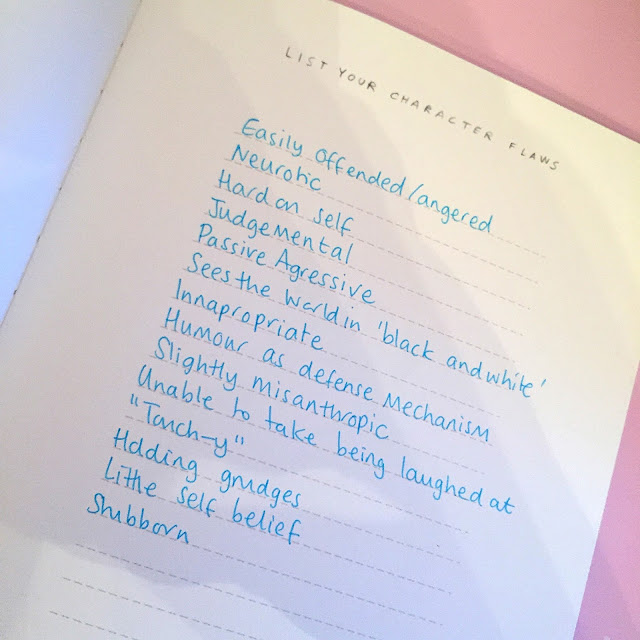 LIST YOUR CHARACTER FLAWS
Easily offended/angered
Neurotic
Hard on self
Judgemental
Passive Agressive
Sees the world in 'black and white'
Innapropriate
Humour as defense Mechanism
Slightly misanthropic
Unable to take being laughed at
"Touch-y"
Holding grudges
Little self belief
Stubborn